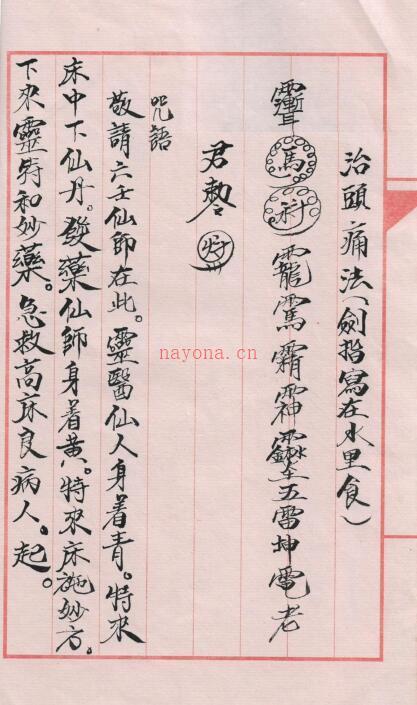 治頭痛法(劍指寫在水里食)
馬 靇 霜 五雷坤電老
君敕
咒語
敬請六壬仙師在此。靈醫仙人身着青。特來
床中下仙丹。發藥仙師身着黄。特來床施妙方。
下來靈符和妙藥。急救高床良病人。起。
nayona.cn